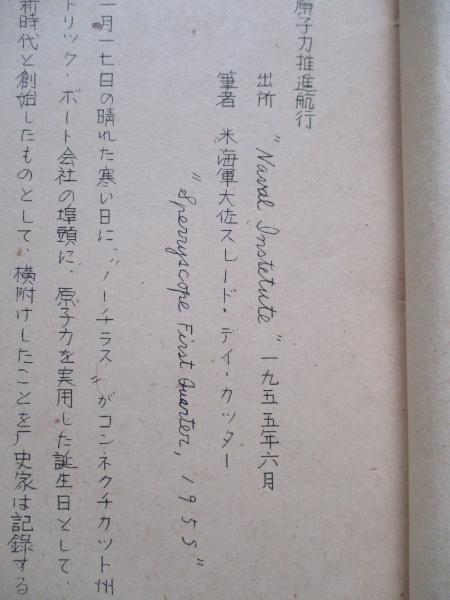 原子力推進航行
出所 "Naval Instetute" 一九五五年六月
筆者 米海軍大佐スレード・デイ・カッター
"Sperryscope First Quarter, 1955"
一月一七日の晴れた寒い日に、"ノーチラス"がコンネクチカット州
トリック・ボート会社の埠頭に、原子力を実用した誕生日として、
新時代と創始したものとして、横附けしたことを厂史家は記録する